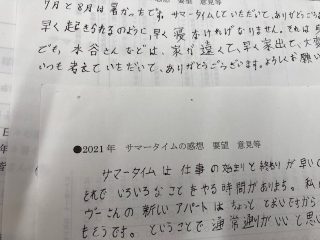 7月と8月は暑かったです。サマータイムしていただいて、ありがとうござい
早く起きられるのように、早く寝なければなりません。それは
でも、本谷さんなどは、家が遠くて、早く家出て、大変
いつも考えていただいて、ありがとうございます。よろしくお願い
●2021年 サマータイムの感想 要望 意見等
サマータイムは仕事の始まりと終わりが早いで
それでいろいろなことをやる時間があります。私
さんの新しいアパートはちょっと
もそうです。ということで通常通りがいいと思い